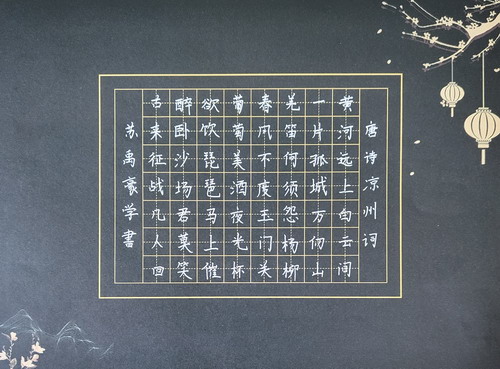 唐诗凉州词
黄河远上白云间
一片孤城万仞山
羌笛何须怨杨柳
春风不度玉门关
葡萄美酒夜光杯
欲饮琵琶马上催
醉卧沙场君莫笑
古来征战几人回
苏禹豪学書